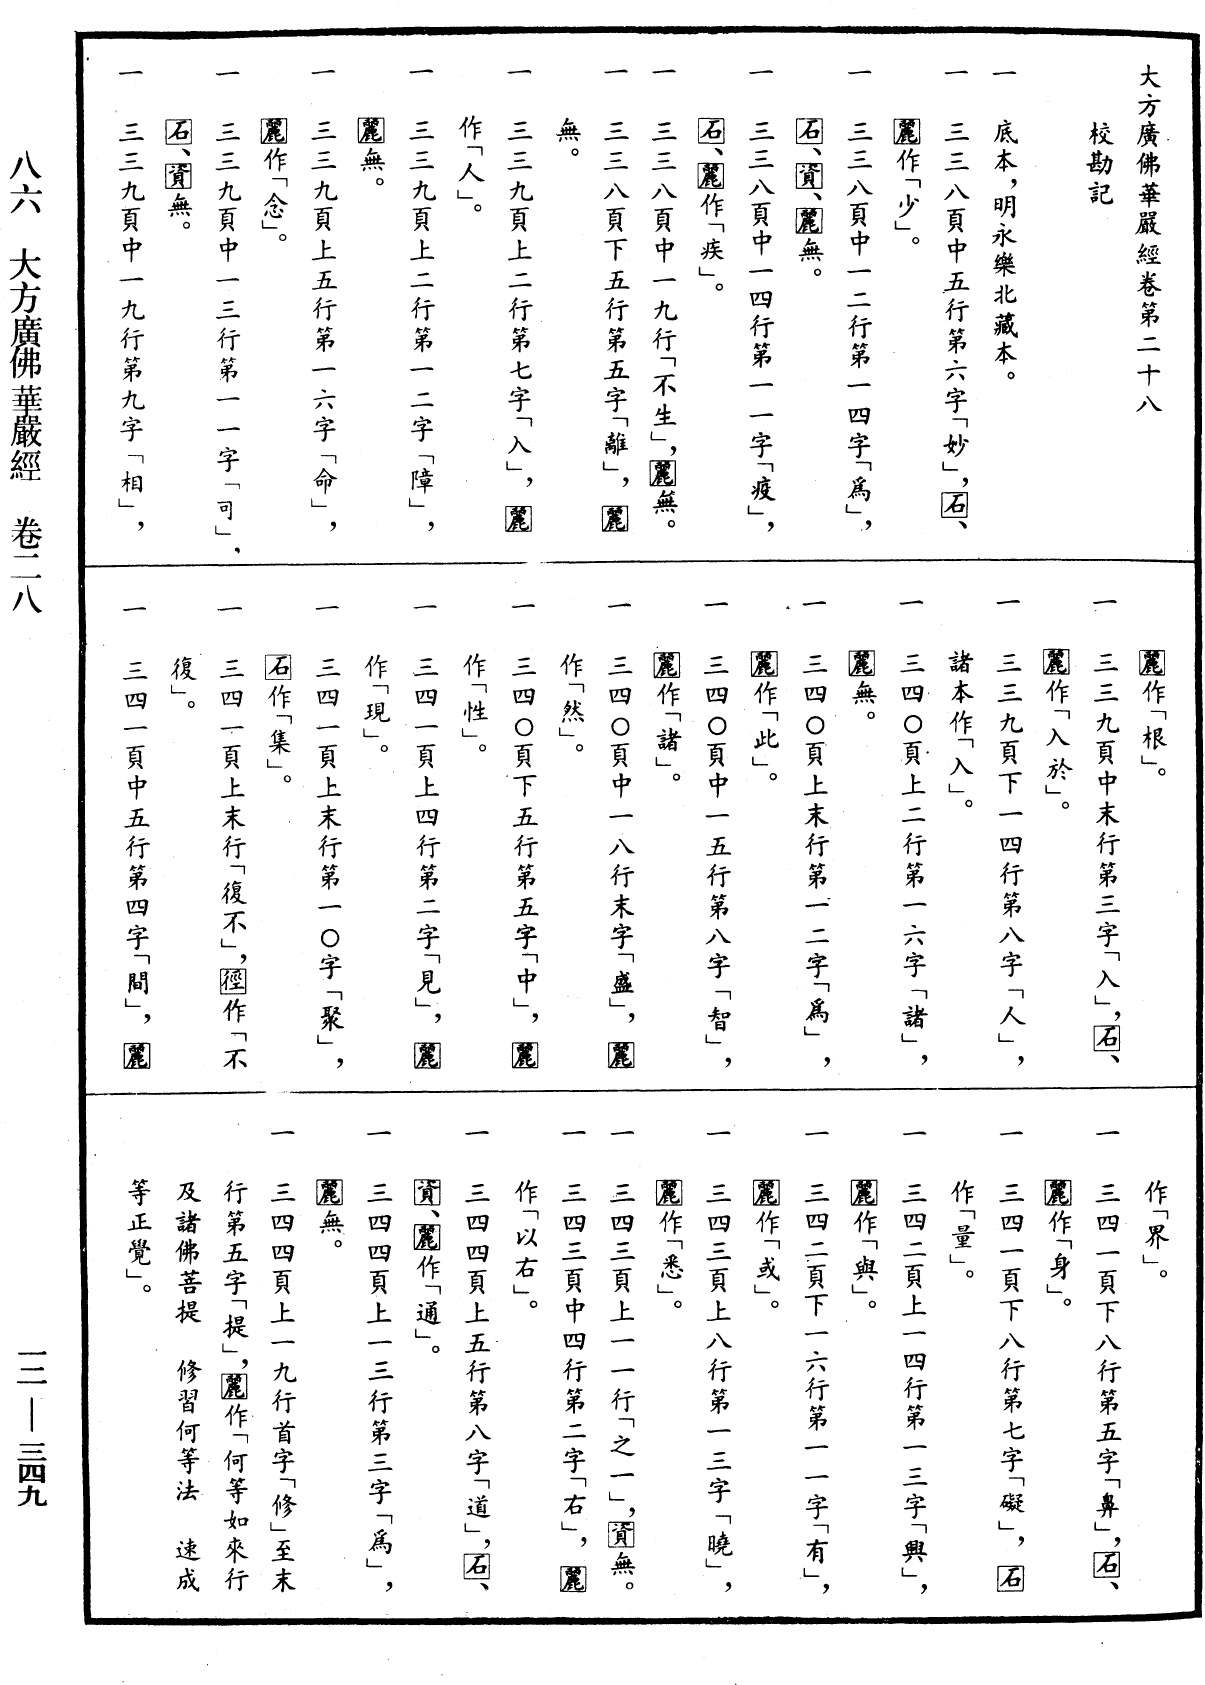 大方廣佛華嚴經卷第二十八
校勘記
一　底本，明永樂北藏本。
一　三三八頁中五行第六字「妙」，石、
麗作「少」。
一　三三八頁中一二行第一四字「爲」，
石、資、麗無。
一　三三八頁中一四行第一一字「疫」，
石、麗作「疾」。
一　三三八頁中一九行「不生」，麗無。
一　三三八頁下五行第五字「離」，麗
無。
一　三三九頁上二行第七字「入」，麗
作「人」。
一　三三九頁上二行第一二字「障」，
麗無。
一　三三九頁上五行第一六字「命」，
麗作「念」。
一　三三九頁中一三行第一一字「可」，
石、資無。
一　三三九頁中一九行第九字「相」，
麗作「根」。
一　三三九頁中末行第三字「入」，石、
麗作「入於」。
一　三三九頁下一四行第八字「人」，
諸本作「入」。
一　三四〇頁上二行第一六字「諸」，
麗無。
一　三四〇頁上末行第一二字「爲」，
麗作「此」。
一　三四〇頁中一五行第八字「智」，
麗作「諸」。
一　三四〇頁中一八行末字「盛」，麗
作「然」。
一　三四〇頁下五行第五字「中」，麗
作「性」。
一　三四一頁上四行第二字「見」，麗
作「現」。
一　三四一頁上末行第一〇字「聚」，
石作「集」。
一　三四一頁上末行「復不」，徑作「不
復」。
一　三四一頁中五行第四字「間」，麗
作「界」。
一　三四一頁下八行第五字「鼻」，石、
麗作「身」。
一　三四一頁下八行第七字「礙」，石
作「量」。
一　三四二頁上一四行第一三字「興」，
麗作「與」。
一　三四二頁下一六行第一一字「有」，
麗作「或」。
一　三四三頁上八行第一三字「曉」，
麗作「悉」。
一　三四三頁上一一行「之一」，資無。
一　三四三頁中四行第二字「右」，麗
作「以右」。
一　三四四頁上五行第八字「道」，石、
資、麗作「通」。
一　三四四頁上一三行第三字「爲」，
麗無。
一　三四四頁上一九行首字「修」至末
行第五字「提」，麗作「何等如來行
及諸佛菩提　修習何等法　速成
等正覺」。
八六　大方廣佛華嚴經　卷二八
一二—三四九